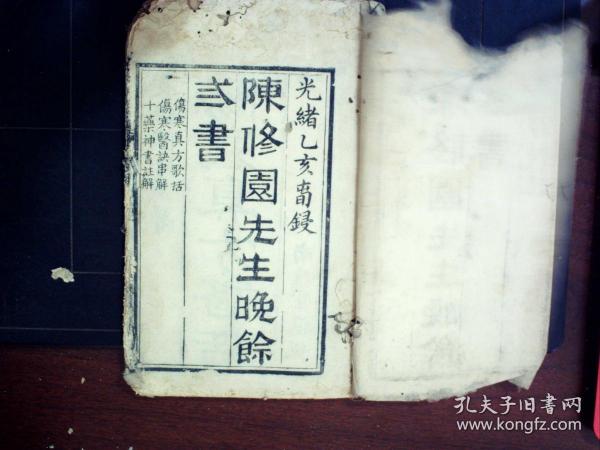 光緒乙亥鋟
陳修園先生晚餘
弎書
傷寒真方歌括
傷寒醫訣串解
十藥神書註解
孔夫子旧书网
www.kongfz.com